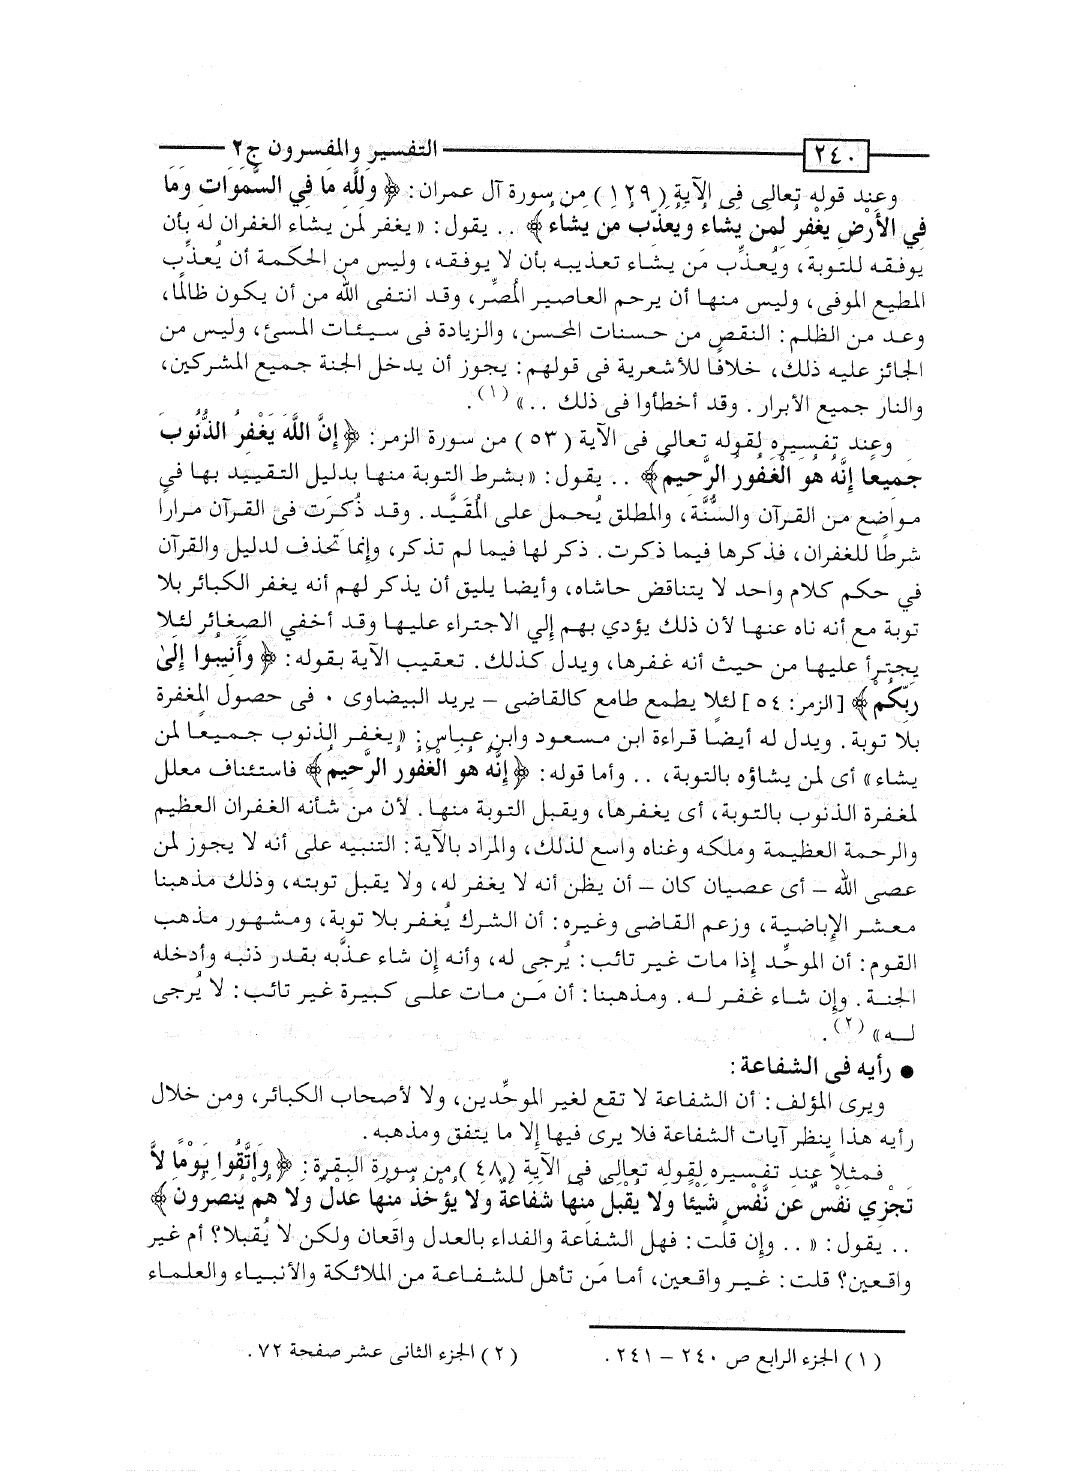 ٢٤٠ التفسير والمفسرون ج٢
وعند قوله تعالى فى الآية (١٢٩) من سورة آل عمران: ﴿ وَلِلَّهِ مَا فِي السَّمَوَاتِ وَمَا
فِي الأَرْضِ يَغْفِرُ لِمَن يَشَاءُ وَيُعَذِّبُ مَن يَشَاءُ ﴾ .. يقول: « يغفر لمن يشاء الغفران له بأن
يوفقه للتوبة، ويُعذِّب مَن يشاء تعذيبه بأن لا يوفقه، وليس من الحكمة أن يُعذِّب
المطيع الموفى، وليس منها أن يرحم العاصير المُصِّر، وقد انتفى الله من أن يكون ظالمًا،
وعد من الظلم: النقص من حسنات المحسن، والزيادة فى سيئات المسئ، وليس من
الجائز عليه ذلك، خلافًا للأشعرية فى قولهم: يجوز أن يدخل الجنة جميع المشركين،
والنار جميع الأبرار. وقد أخطأوا فى ذلك ..» (١).
وعند تفسيره لقوله تعالى فى الآية (٥٣) من سورة الزمر: ﴿ إِنَّ اللَّهَ يَغْفِرُ الذُّنُوبَ
جَمِيعًا إِنَّهُ هُوَ الْغَفُورُ الرَّحِيمُ﴾ .. يقول: «بشرط التوبة منها بدليل التقييد بها في
مواضع من القرآن والسُّنَّة، والمطلق يُحمل على المُقيَّد. وقد ذُكرَت فى القرآن مرارا
شرطًا للغفران، فذكرها فيما ذكرت. ذكر لها فيما لم تذكر، وإنما تحذف لدليل والقرآن
في حكم كلام واحد لا يتناقض حاشاه، وأيضا يليق أن يذكر لهم أنه يغفر الكبائر بلا
توبة مع أنه ناه عنها لأن ذلك يؤدي بهم إلي الاجتراء عليها وقد أخفي الصغائر لئلا
يجترأ عليها من حيث أنه غفرها، ويدل كذلك. تعقيب الآية بقوله: ﴿ وَأَنِيبُوا إِلَىٰ
رَبِّكُمْ﴾ [الزمر: ٥٤] لئلا يطمع طامع كالقاضى – يريد البيضاوى ٠ فى حصول المغفرة
بلا توبة. ويدل له أيضًا قراءة ابن مسعود وابن عباس: «يغفر الذنوب جميعا لمن
يشاء» أى لمن يشاؤه بالتوبة، .. وأما قوله: ﴿إِنَّهُ هُوَ الْغَفُورُ الرَّحِيمُ﴾ فاستئناف معلل
لمغفرة الذنوب بالتوبة، أى يغفرها، ويقبل التوبة منها. لأن من شأنه الغفران العظيم
والرحمة العظيمة وملكه وغناه واسع لذلك، والمراد بالآية: التنبيه على أنه لا يجوز لمن
عصى الله – أى عصيان كان – أن يظن أنه لا يغفر له، ولا يقبل توبته، وذلك مذهبنا
معشر الإباضية، وزعم القاضى وغيره: أن الشرك يُغفر بلا توبة، ومشهور مذهب
القوم: أن الموحِّد إذا مات غير تائب: يُرجى له، وأنه إن شاء عذَّبه بقدر ذنبه وأدخله
الجنة. وإن شاء غفر له. ومذهبنا: أن مَن مات على كبيرة غير تائب: لا يُرجى
له» (٢).
● رأيه فى الشفاعة:
ويرى المؤلف: أن الشفاعة لا تقع لغير الموحِّدين، ولا لأصحاب الكبائر، ومن خلال
رأيه هذا ينظر آيات الشفاعة فلا يرى فيها إلا ما يتفق ومذهبه.
فمثلاً عند تفسيره لقوله تعالى فى الآية (٤٨) من سورة البقرة: ﴿ وَاتَّقُوا يَوْمًا لاَّ
تَجْزِي نَفْسٌ عَن نَّفْسٍ شَيْئًا وَلا يُقْبَلُ مِنْهَا شَفَاعَةٌ وَلا يُؤْخَذُ مِنْهَا عَدْلٌ وَلا هُمْ يُنصَرُونَ ﴾
.. يقول: « .. وإن قلت: فهل الشفاعة والفداء بالعدل واقعان ولكن لا يُقبلا؟ أم غير
واقعين؟ قلت: غير واقعين، أما مَن تأهل للشفاعة من الملائكة والأنبياء والعلماء
(١) الجزء الرابع ص ٢٤٠ – ٢٤١. (٢) الجزء الثانى عشر صفحة ٧٢.